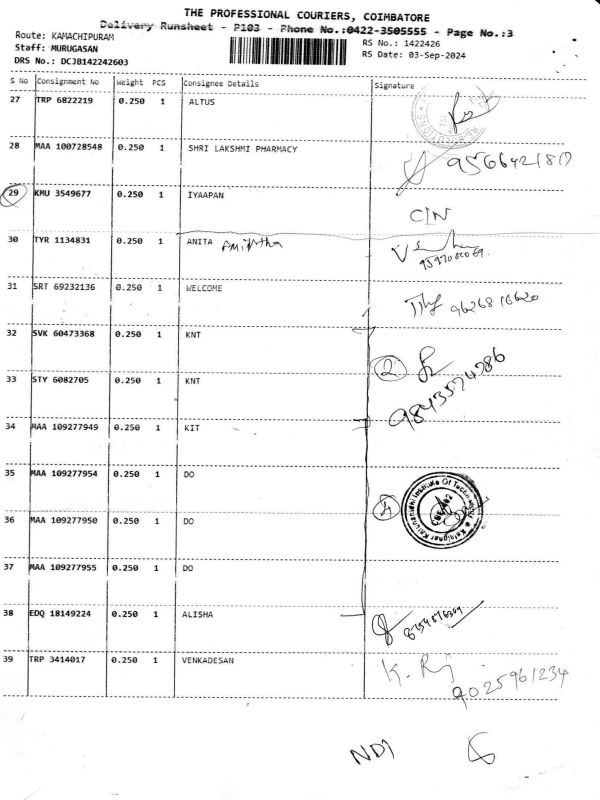 THE PROFESSIONAL COURIERS, COIMBATORE
Delivery Runsheet - P103 - Phone No.:0422-3505555 - Page No.:3
Route: KAMACHIPURAM
Staff: MURUGASAN
DRS No.: DCJB142242603
RS No.: 1422426
RS Date: 03-Sep-2024
S No Consignment No Weight PCS Consignee Details Signature
27 TRP 6822219 0.250 1 ALTUS
28 MAA 100728548 0.250 1 SHRI LAKSHMI PHARMACY
29 KMU 3549677 0.250 1 IYAAPAN
C/N
30 TYR 1134831 0.250 1 ANITA
31 SRT 69232136 0.250 1 WELCOME
32 SVK 60473368 0.250 1 KNT
2
33 STY 6082705 0.250 1 KNT
9843574786
34 MAA 109277949 0.250 1 KIT
35 MAA 109277954 0.250 1 DO
4
Kalaignar Karunanidhi Institute Of Technology
36 MAA 109277950 0.250 1 DO
37 MAA 109277955 0.250 1 DO
38 EDQ 18149224 0.250 1 ALISHA
39 TRP 3414017 0.250 1 VENKADESAN
9025961234